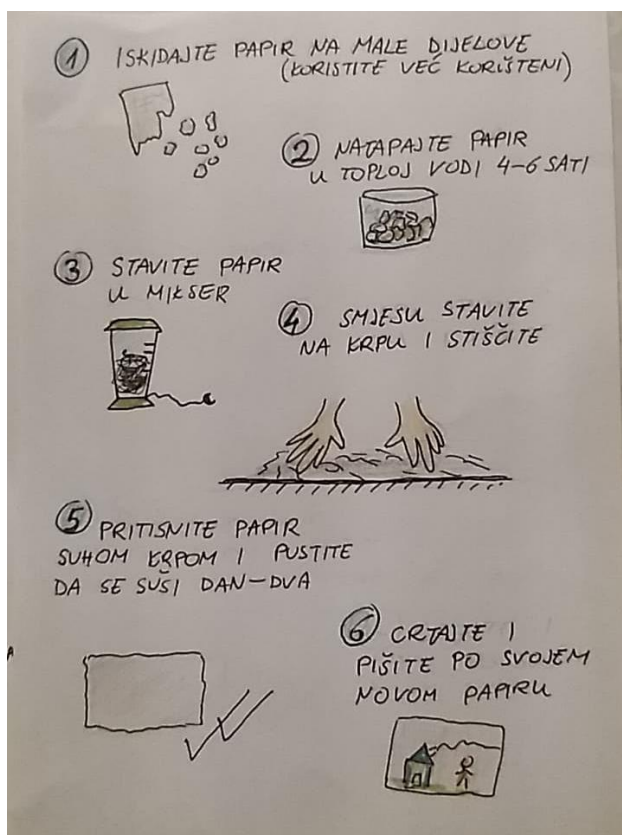 1 ISKIDAJTE PAPIR NA MALE DIJELOVE
(KORISTITE VEĆ KORIŠTENI)
2 NATAPAJTE PAPIR
U TOPLOJ VODI 4-6 SATI
3 STAVITE PAPIR
U MIKSER
4 SMJESU STAVITE
NA KRPU I STIŠČITE
5 PRITISNITE PAPIR
SUHOM KRPOM I PUSTITE
DA SE SUŠI DAN-DVA
6 CRTAJTE I
PIŠITE PO SVOJEM
NOVOM PAPIRU